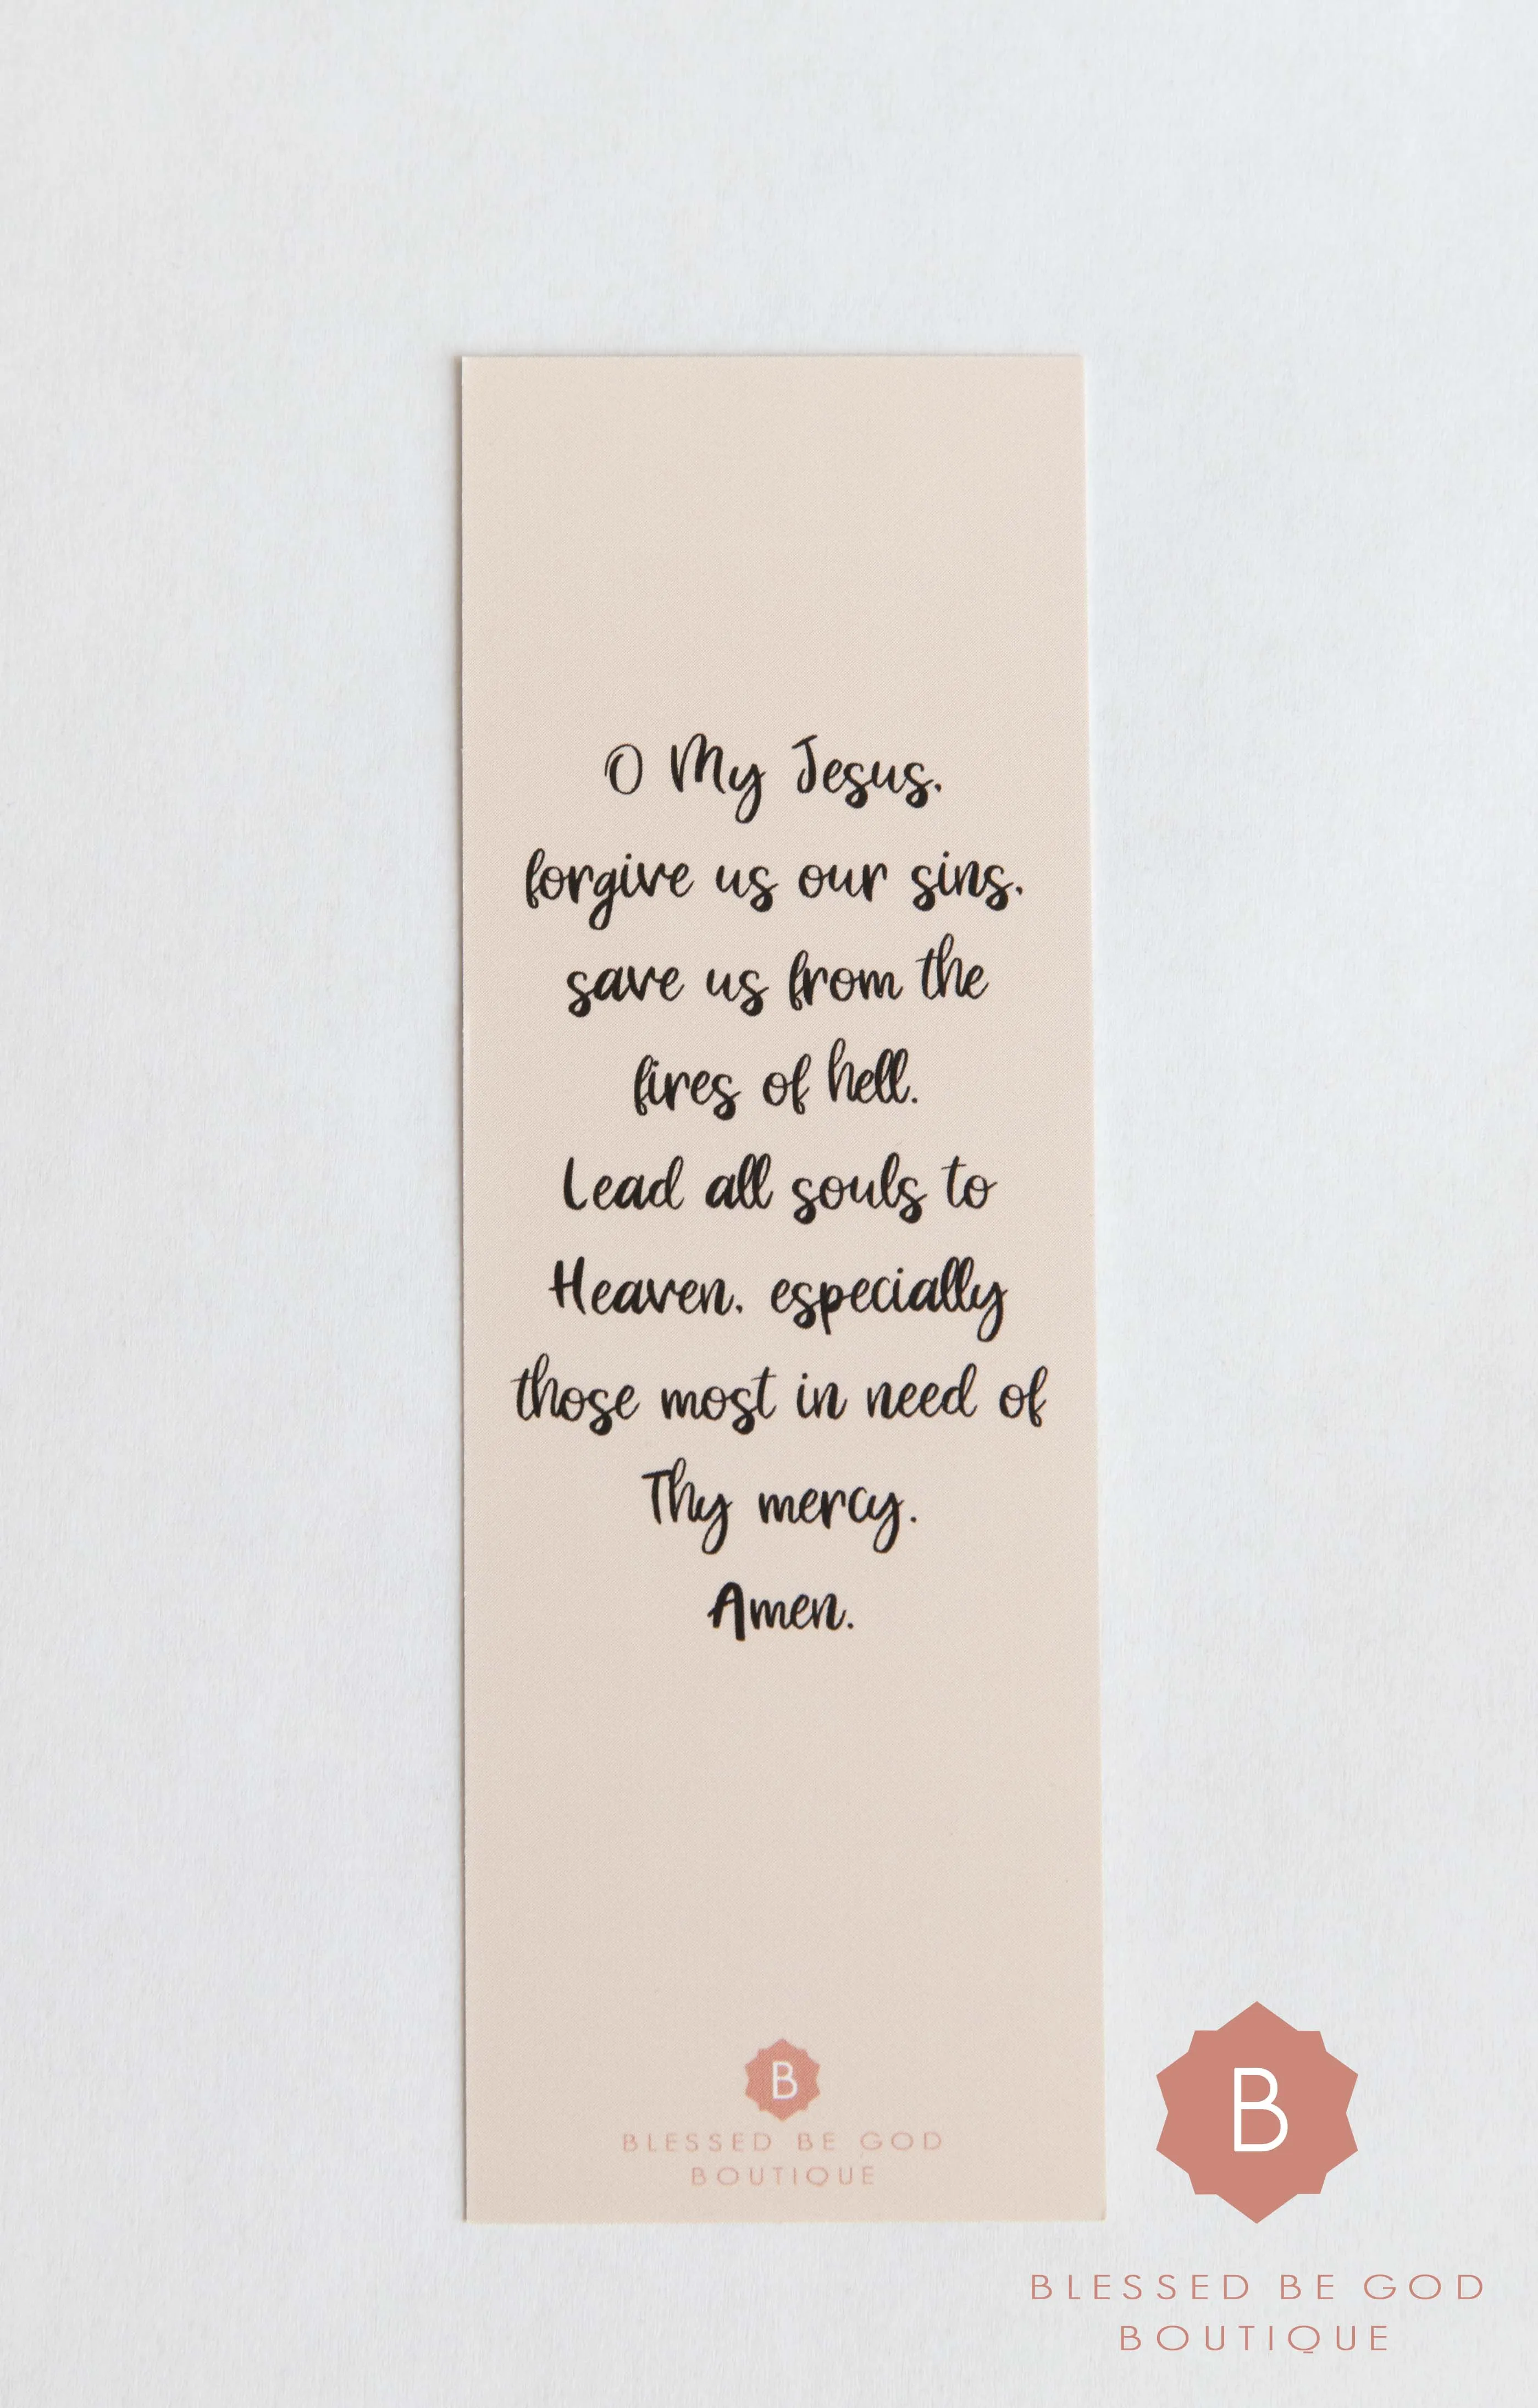 O My Jesus,
forgive us our sins,
save us from the
fires of hell.
Lead all souls to
Heaven, especially
those most in need of
Thy mercy.
Amen.
B
BLESSED BE GOD
BOUTIQUE
B
BLESSED BE GOD
BOUTIQUE